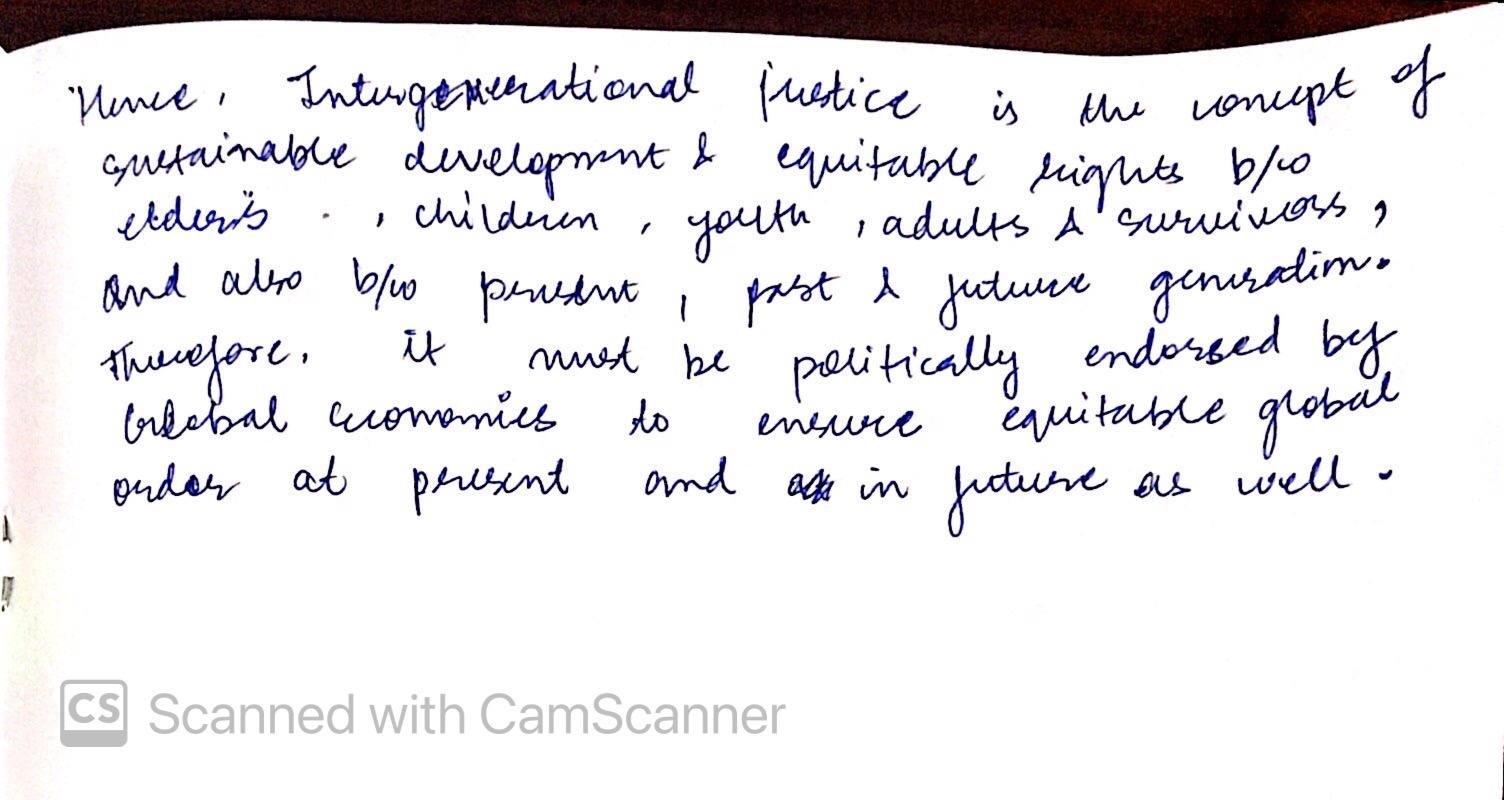 Hence, Intergenerational justice is the concept of
sustainable development & equitable rights b/w
elders , children , youth , adults & survivors ,
and also b/w present , past & future generation.
Therefore, it must be politically endorsed by
Global economies to ensure equitable global
order at present and in future as well .
CS Scanned with CamScanner